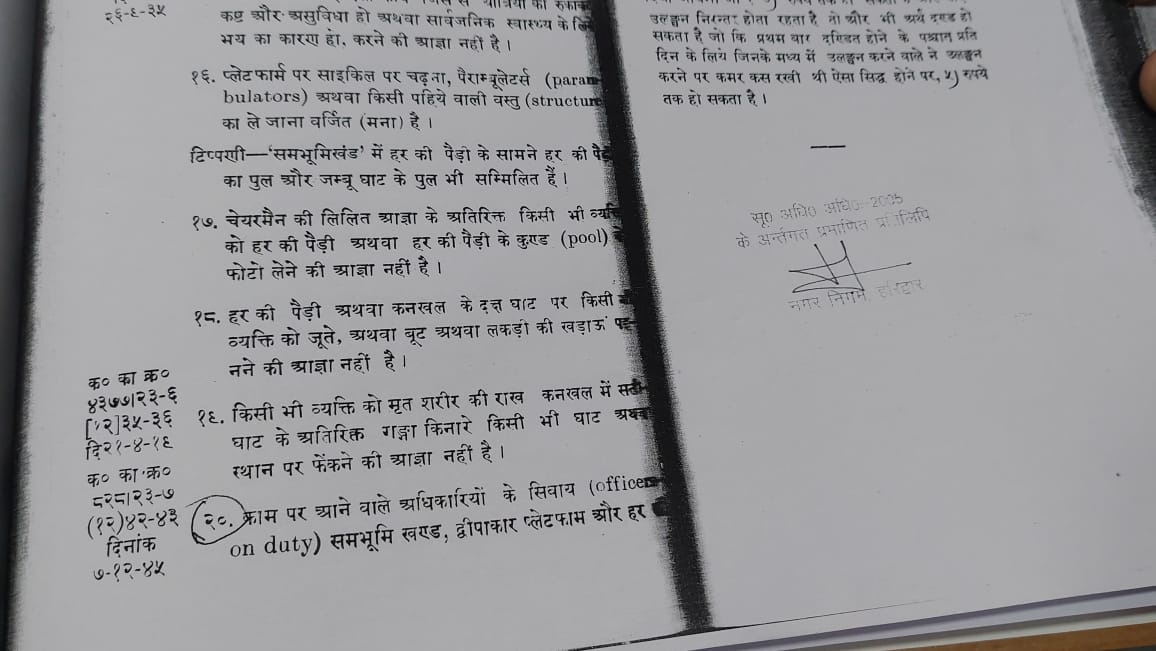 २६-६-३५
कष्ट और असुविधा हो अथवा सार्वजनिक स्वास्थ्य के लि
भय का कारण हो, करने की आज्ञा नहीं है।
१६. प्लेटफार्म पर साइकिल पर चढ़ना, पैराम्बूलेटर्स (param
bulators) अथवा किसी पहिये वाली वस्तु (structur
का ले जाना वर्जित (मना) है।
टिप्पणी—‘समभूमिखंड’ में हर की पैड़ी के सामने हर की पै
का पुल और जम्बू घाट के पुल भी सम्मिलित हैं।
१७. चेयरमैन की लिलित आज्ञा के अतिरिक्त किसी भी व्य
को हर की पैड़ी अथवा हर की पैड़ी के कुण्ड (pool)
फोटो लेने की आज्ञा नहीं है।
१८. हर की पैड़ी अथवा कनखल के दक्ष घाट पर किसी
व्यक्ति को जूते, अथवा बूट अथवा लकड़ी की खड़ाऊं पह
नने की आज्ञा नहीं है।
क० का क्र०
४३७७।२३-६
[१२]३५-३६
दि२१-४-१६
१६. किसी भी व्यक्ति को मृत शरीर की राख कनखल में सती
घाट के अतिरिक्त गङ्गा किनारे किसी भी घाट अथवा
स्थान पर फेंकने की आज्ञा नहीं है।
क० का क्र०
८२८।२३-७
(१२)४२-४३
दिनांक
७-१२-४५
२०. काम पर आने वाले अधिकारियों के सिवाय (officer
on duty) समभूमि खण्ड, द्वीपाकार प्लेटफाम और हर
उलङ्घन निरन्तर होता रहता है तो और भी अर्थ दण्ड हो
सकता है जो कि प्रथम वार दण्डित होने के पश्चात प्रति
दिन के लिये जिनके मध्य में उलङ्घन करने वाले ने उलङ्घन
करने पर कमर कस रखी थी ऐसा सिद्ध होने पर, ५) रुपये
तक हो सकता है।
सू० अधि० अधि०-2005
के अर्न्तगत प्रमाणित प्रतिलिपि
नगर निगम, हरिद्वार